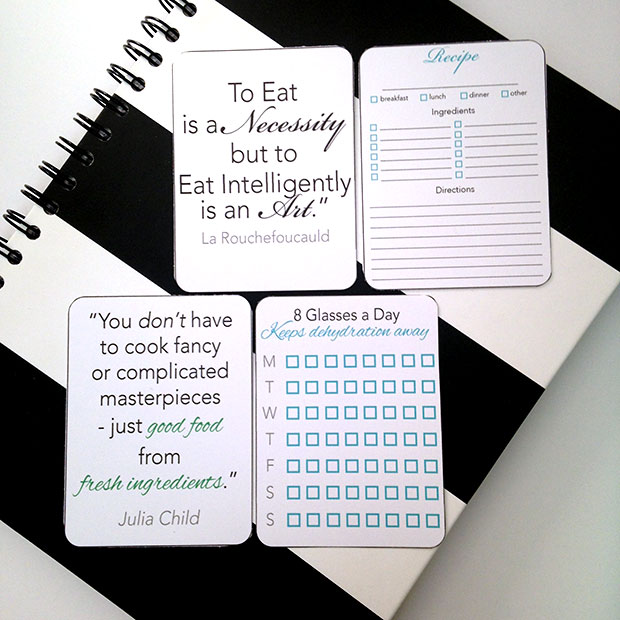 To Eat
is a Necessity
but to
Eat Intelligently
is an Art."
La Rouchefoucauld
Recipe
breakfast lunch dinner other
Ingredients
Directions
"You don't have
to cook fancy
or complicated
masterpieces
- just good food
from
fresh ingredients."
Julia Child
8 Glasses a Day
Keeps dehydration away
M
T
W
T
F
S
S